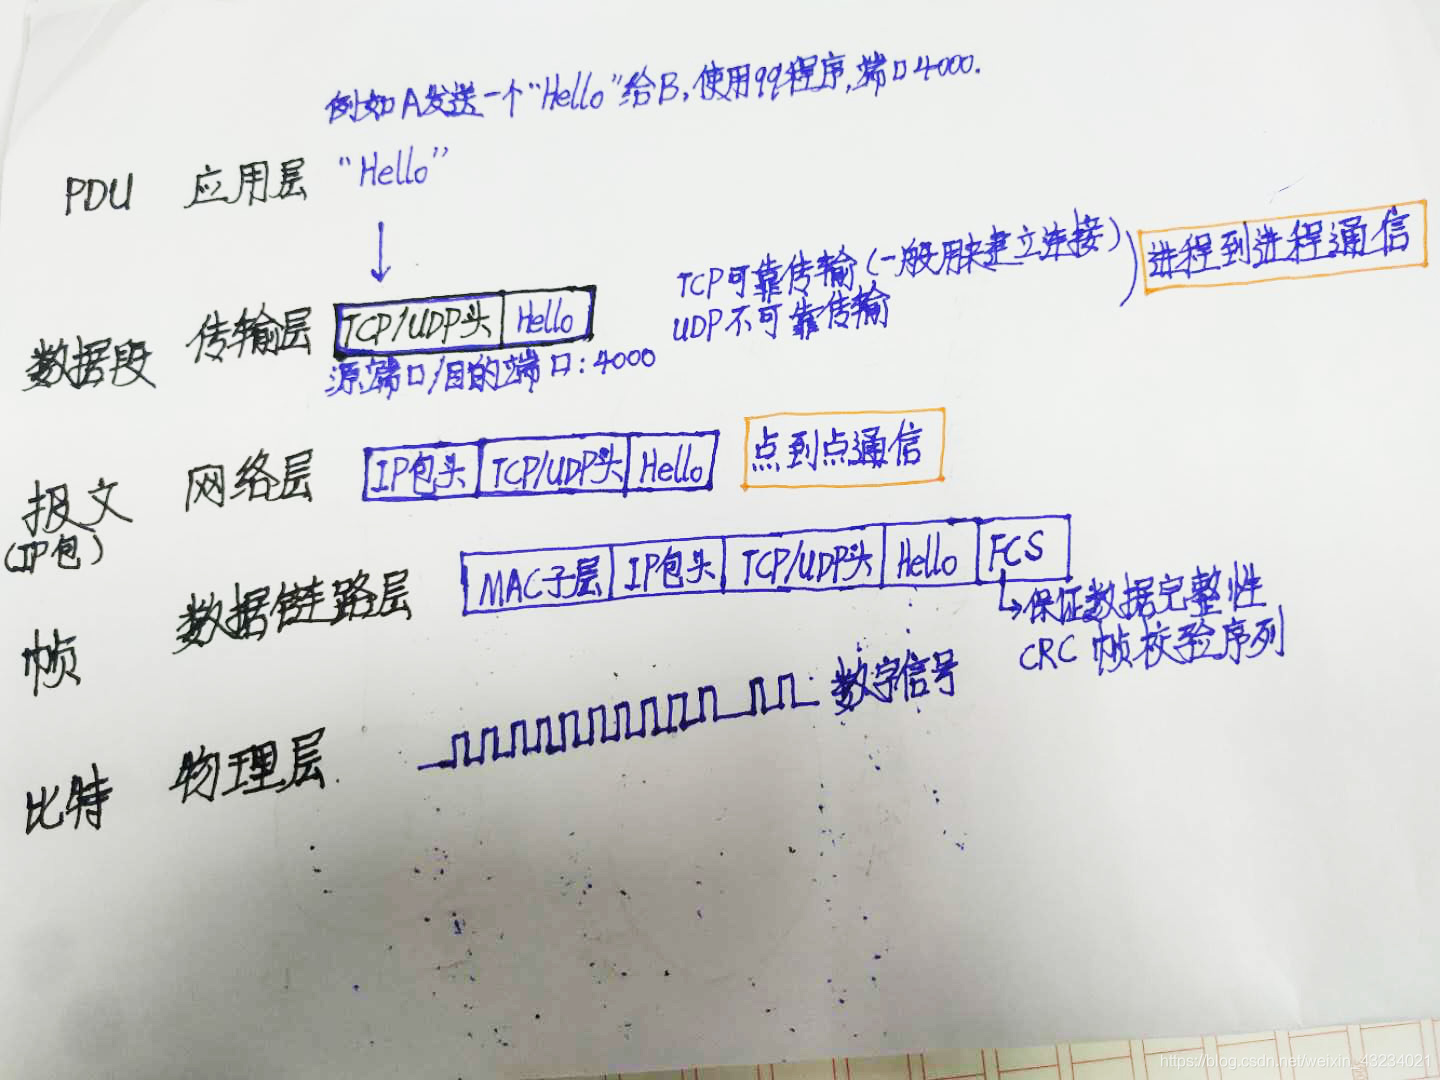 例如A发送一个“Hello”给B,使用qq程序,端口4000.
PDU 应用层 “Hello”
数据段 传输层 TCP/UDP头 Hello
源端口/目的端口:4000
TCP可靠传输(一般用来建立连接)
UDP不可靠传输
进程到进程通信
报文 网络层 IP包头 TCP/UDP头 Hello 点到点通信
(IP包)
帧 数据链路层 MAC子层 IP包头 TCP/UDP头 Hello FCS
保证数据完整性
CRC 帧校验序列
比特 物理层 数字信号
https://blog.csdn.net/weixin_43234021